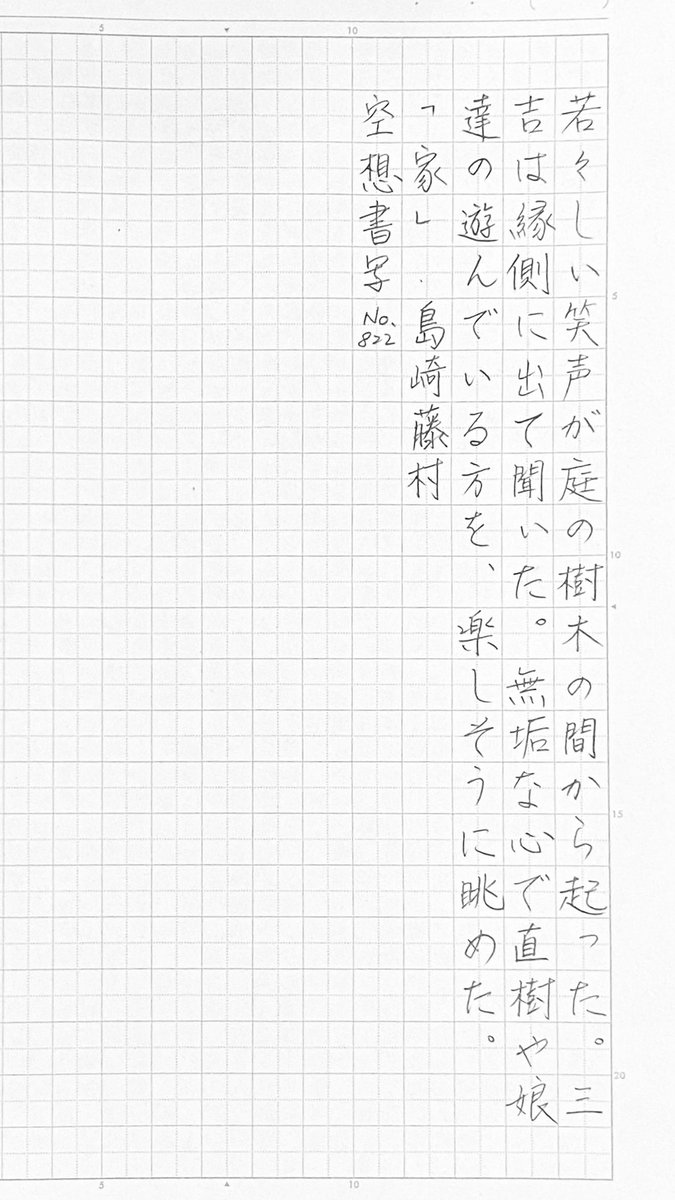 若々しい笑声が庭の樹木の間から起った。三
吉は縁側に出て聞いた。無垢な心で直樹や娘
達の遊んでいる方を、楽しそうに眺めた。
「家」. 島崎藤村
空想書写 No.822
5
10
5
10
15
20
5
10